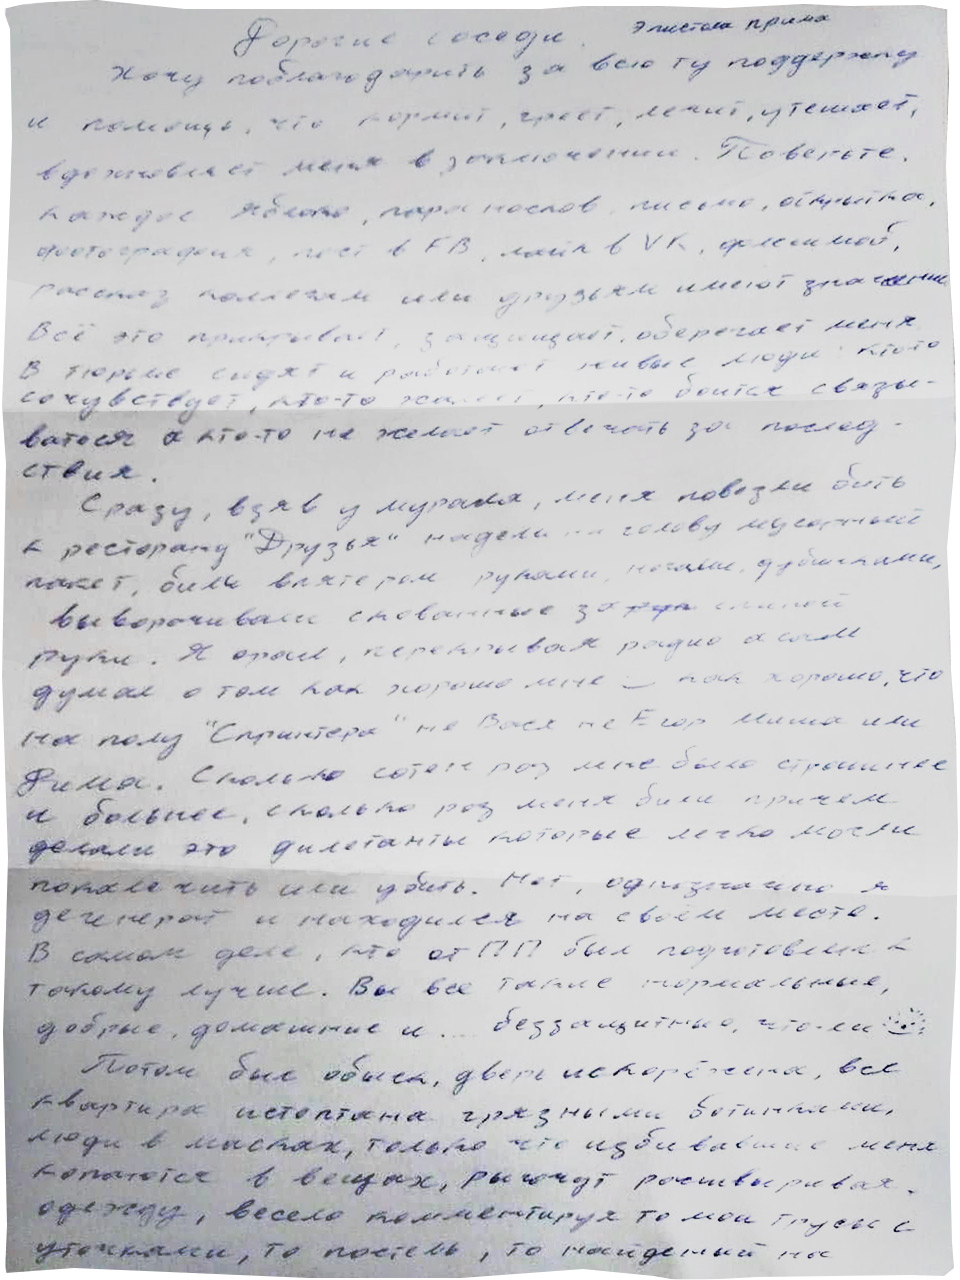 Дорогие соседи. Эпистола прима
Хочу поблагодарить за всю ту поддержку
и помощь, что кормит, греет, лечит, утешает,
вдохновляет меня в заключении. Поверьте,
каждое яблоко, пара носков, письмо, открытка,
фотография, пост в FB, лайк в VK, флешмоб,
рассказ коллегам или друзьям имеют значение
Всё это прикрывает, защищает, оберегает меня
В тюрьме сидят и работают живые люди: кто-то
сочувствует, кто-то жалеет, кто-то боится связы-
ваться а кто-то не желает отвечать за послед-
ствия.
Сразу, взяв у мурала, меня повезли бить
к ресторану "Друзья" надели на голову мусорный
пакет, били впятером руками, ногами, дубинками,
выворачивали скованные за спиной
руки. Я орал, перекрывая радио а сам
думал о том как хорошо мне – как хорошо, что
на полу "Спринтера" не Вася не Егор Миша или
Дима. Сколько сотен раз мне было страшнее
и больнее, сколько раз меня били причем
делали это дилетанты которые легко могли
покалечить или убить. Нет, однозначно я
дегенерат и находился на своем месте.
В самом деле, кто от ПП был подготовлен к
такому лучше. Вы все такие нормальные,
добрые, домашние и... беззащитные, что-ли
Потом был обыск, дверь искорёжена, вся
квартира истоптана грязными ботинками,
люди в масках, только что избивавшие меня
копаются в вещах, рыгочут расшвыривая
одежду, весело комментируя то мои трусы с
уточками, то постель, то найденый на